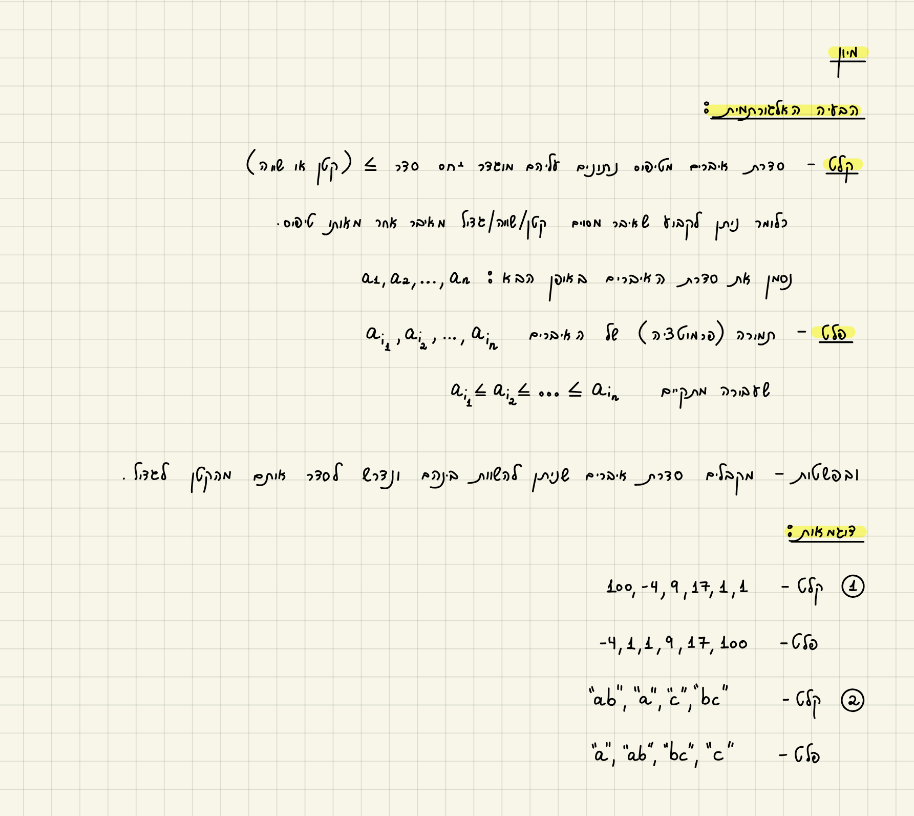 מיון
הבעיה האלגורתמית :
קלט - סדרת איברים מטיפוס נתונים עליהם מוגדר יחס סדר ≥ (קטן או שווה)
כלומר ניתן לקבוע שאיבר מסוים קטן/שווה/גדול מאיבר אחר מאותו טיפוס.
נסמן את סדרת האיברים באופן הבא : a₁, a₂, ..., aₙ
פלט - תמורה (פרמוטציה) של האיברים a_{i₁}, a_{i₂}, ..., a_{iₙ}
שעבורה מתקיים a_{i₁} ≤ a_{i₂} ≤ ... ≤ a_{iₙ}
ובפשטות - מקבלים סדרת איברים שניתן להשוות בינהם ונדרש לסדר אותם מהקטן לגדול.
דוגמאות :
① קלט - 100, -4, 9, 17, 1, 1
פלט - -4, 1, 1, 9, 17, 100
② קלט - "ab", "a", "c", "bc"
פלט - "a", "ab", "bc", "c"